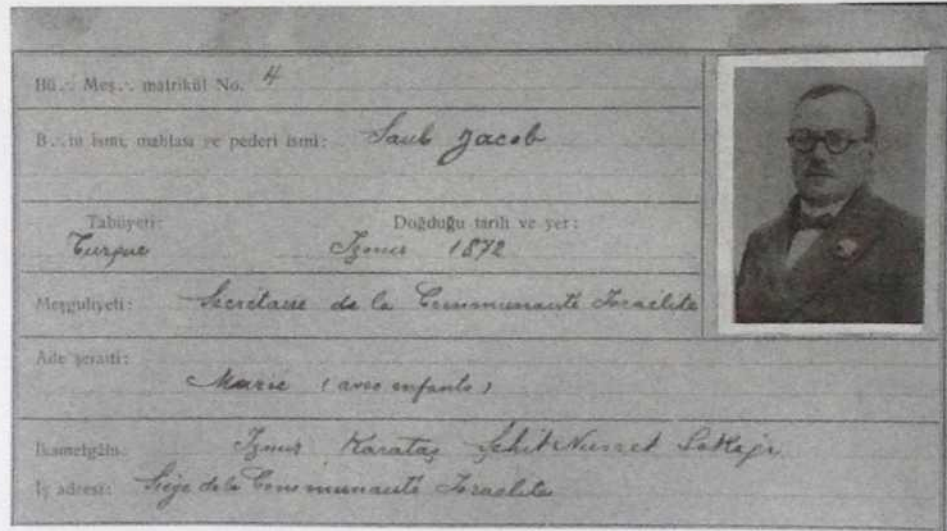 Bü.·. Meş.·. matrikül No. 4
B.·.in ismi, mahlası ve pederi ismi: Saul Jacob
Tabiiyeti: Doğduğu tarih ve yer:
Turque Izmir 1872
Meşguliyeti: Secrétaire de la Communauté Israélite
Aile şeraiti:
Marié (avec enfants)
İkametgâhı: Izmir Karataş Şehit Nusret Sokağı
İş adresi: Siège de la Communauté Israélite